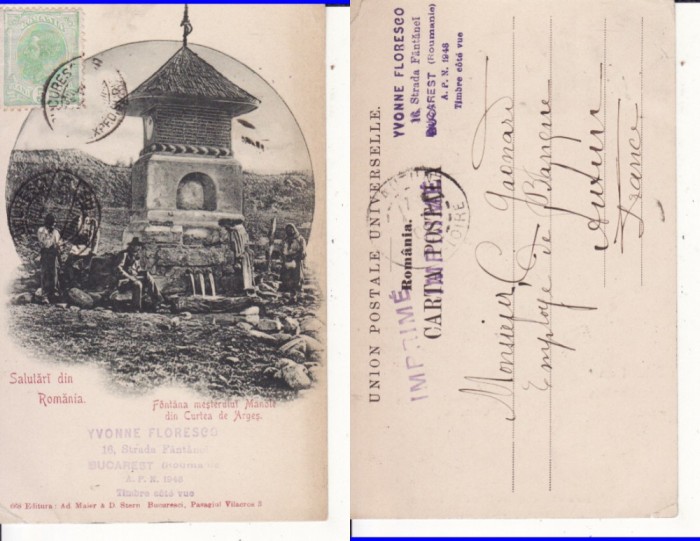 Salutări din
România.
Fôntâna meșterului Manole
din Curtea de Argeș.
YVONNE FLORESCO
16, Strada Fântânei
BUCAREST (Roumanie)
A. P. N. 1948
Timbre côté vue
Editura: Ad. Maier & D. Stern Bucuresci, Pasagiul Vilacros 3
YVONNE FLORESCO
16, Strada Fântânei
BUCAREST (Roumanie)
A. P. N. 1948
Timbre côté vue
UNION POSTALE UNIVERSELLE.
România.
CARTA POSTALĂ
IMPRIMÉ
Monsieur
Employé de Banque
Autun
France